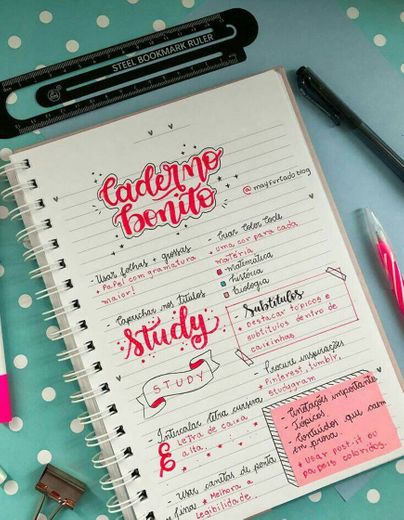 STEEL BOOKMARK RULER
Caderno
bonito
@mayfurtadoblog
- Usar folhas + grossas
* Papel com gramatura
maior!
- Criar Color Code
* uma cor para cada
matéria
matemática
história
biologia
- Caprichar nos títulos
Study
STUDY
Subtítulos
* Destacar tópicos e
subtítulos dentro de
caixinhas
- Procure inspirações
* Pinterest, tumblr,
studygram
- Intercalar letra cursiva
E
* Letra de caixa
alta
- Usar canetas de ponta
fina:
* Melhora a
legibilidade
- Anotações importantes
- Tópicos
- Conteúdos que caem
em prova.
* Usar post.it ou
papéis coloridos.